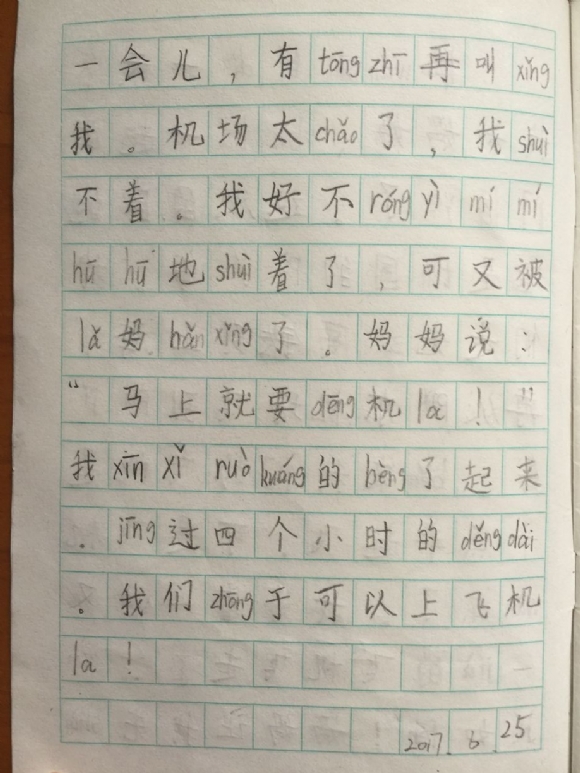 一会儿，有tōng zhī再叫xǐng
我。机场太chǎo了，我shuì
不着。我好不róng yì mí mí
hū hū地shuì着了，可又被
lǎ妈hǎn xǐng了。妈妈说：
“马上就要dēng机la！”
我xīn xǐ ruò kuáng的bèng了起来
．jīng过四个小时的děng dài
。我们zhōng于可以上飞机
la！
2017.6.25